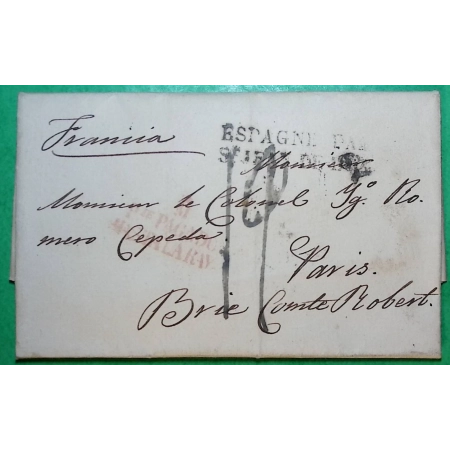 Francia
ESPAGNE PAR
ST JEAN DE LUZ
Monsieur
Monsieur le Colonel Ig.º Ro-
mero Cepeda.
Paris.
Brie Comte Robert.